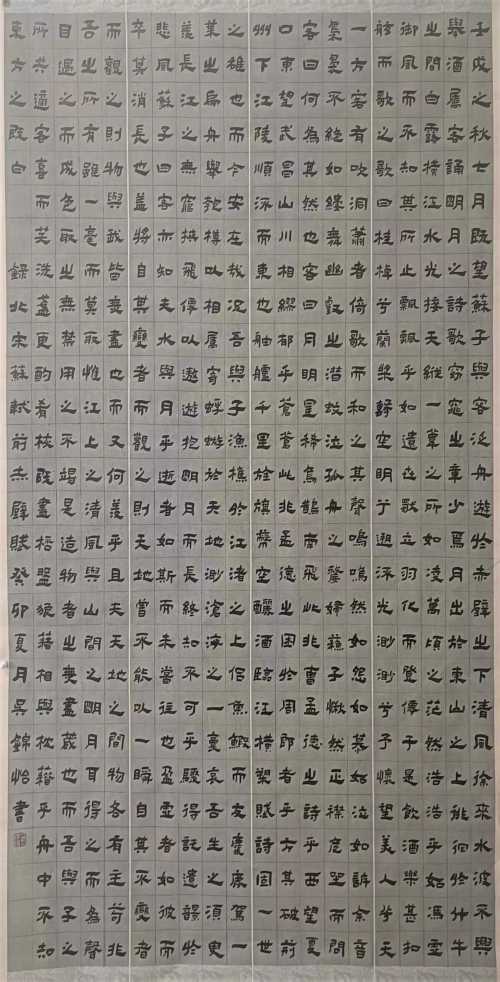 壬戌之秋七月既望蘇子與客泛舟遊於赤壁之下清風徐來水波不興
舉酒屬客誦明月之詩歌窈窕之章少焉月出於東山之上徘徊於斗牛
之間白露橫江水光接天縱一葦之所如凌萬頃之茫然浩浩乎如馮虛
御風而不知其所止飄飄乎如遺世獨立羽化而登僊於是飲酒樂甚扣
舷而歌之歌曰桂棹兮蘭槳擊空明兮遡流光渺渺兮予懷望美人兮天
一方客有吹洞簫者倚歌而和之其聲嗚嗚然如怨如慕如泣如訴余音
裊裊不絕如縷舞幽壑之潛蛟泣孤舟之嫠婦蘇子愀然正襟危坐而問
客曰何為其然也客曰月明星稀烏鵲南飛此非曹孟德之詩乎西望夏
口東望武昌山川相繆鬱乎蒼蒼此非孟德之困於周郎者乎方其破荊
州下江陵順流而東也舳艫千里旌旗蔽空釃酒臨江橫槊賦詩固一世
之雄也而今安在哉況吾與子漁樵於江渚之上侶魚蝦而友麋鹿駕一
葉之扁舟舉匏樽以相屬寄蜉蝣於天地渺滄海之一粟哀吾生之須臾
羨長江之無窮挾飛僊以遨遊抱明月而長終知不可乎驟得託遺響於
悲風蘇子曰客亦知夫水與月乎逝者如斯而未嘗往也盈虛者如彼而
卒莫消長也蓋將自其變者而觀之則天地曾不能以一瞬自其不變者
而觀之則物與我皆無盡也而又何羨乎且夫天地之間物各有主苟非
吾之所有雖一毫而莫取惟江上之清風與山間之明月耳得之而為聲
目遇之而成色取之無禁用之不竭是造物者之無盡藏也而吾與子之
所共適客喜而笑洗盞更酌肴核既盡杯盤狼藉相與枕藉乎舟中不知
東方之既白 錄北宋蘇軾前赤壁賦癸卯夏月吳錦怡書